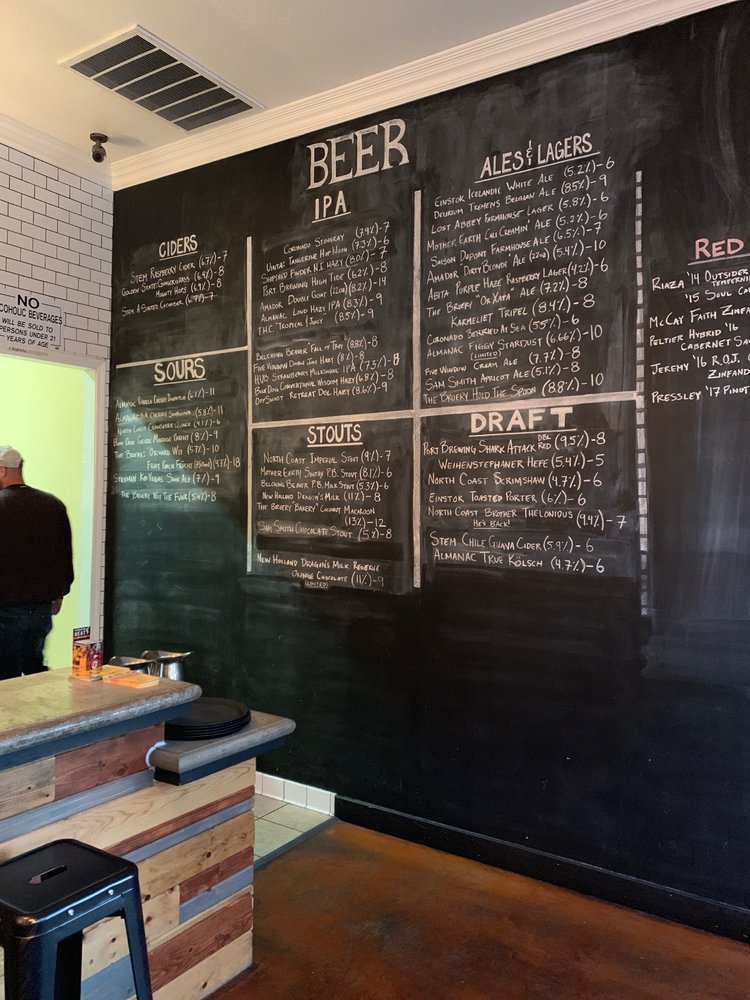 BEER
CIDERS
STEM RASPBERRY CIDER (6.7%)-7
GOLDEN STATE: GINGERGRASS (6.9%)-8
MIGHTY HOPS (6.9%)-8
STEM A SALTED CUCUMBER
SOURS
NORTH COAST CRANBERRY QUINCE (4.1%)-6
THE BRUERY: ORCHARD WIT (5.7%)-10
STIEGMAN RIO VEGAS SOUR ALE (7%)-9
THE BRUERY NOT THE FUNK (5.4%)-8
IPA
CORONADO STINGRAY (7.9%)-7
UINTA: TANGERINE HOP NOSH (7.3%)-6
SHIPYARD FINDER N.E. HAZY (8.0%)-7
PORT BREWING HIGH TIDE (6.2%)-8
AMADOR DOUBLE GOAT (22oz) (8.2%)-14
ALMANAC LOUD HAZY IPA (8.3%)-9
T.H.C. TROPICAL & JUICY (8.5%)-9
BELCHING BEAVER FALL OF TROY (8.8%)-8
FIVE WINDOW DOUBLE JOINT HAZY (8%)-8
HUB STRAWBERRY MILKSHAKE IPA (7.3%)-8
BIKE DOG CONVENTIONAL WISDOM HAZY (6.8%)-8
OFFSHOOT RETREAT DBL HAZY (8.6%)-9
STOUTS
NORTH COAST IMPERIAL STOUT (9%)-7
MOTHER EARTH SINTAX P.B. STOUT (8.1%)-6
BELCHING BEAVER P.B. MILK STOUT (5.3%)-6
NEW HOLLAND DRAGON'S MILK (11%)-8
THE BRUERY "BAKERY" COCONUT MACAROON
(13%)-12
SAM SMITH CHOCOLATE STOUT (5%)-8
NEW HOLLAND DRAGON'S MILK RESERVE
ORANGE CHOCOLATE (11%)-9
(LIMITED)
ALES & LAGERS
EINSTOK ICELANDIC WHITE ALE (5.2%)-6
DELIRIUM TREMENS BELGIAN ALE (8.5%)-9
LOST ABBEY FARMHOUSE LAGER (5.8%)-6
MOTHER EARTH CALI CREAMIN' ALE (5.2%)-6
SAISON DUPONT FARMHOUSE ALE (6.5%)-7
AMADOR DIRTY BLONDE ALE (22oz) (5.4%)-10
ABITA PURPLE HAZE RASPBERRY LAGER (4.2%)-6
THE BRUERY "OR XATA" ALE (7.2%)-8
KARMELIET TRIPEL (8.4%)-8
CORONADO BERURIED AT SEA (5.5%)-6
ALMANAC FIGGY STARDUST (6.66%)-10
(LIMITED)
FIVE WINDOW CREAM ALE (7.7%)-8
SAM SMITH APRICOT ALE (5.1%)-8
THE BRUERY HOLD THE SPOON (8.8%)-10
DRAFT
PORT BREWING SHARK ATTACK DBL RED (9.5%)-8
WEIHENSTEPHANER HEFE (5.4%)-5
NORTH COAST SCRIMSHAW (4.7%)-6
EINSTOK TOASTED PORTER (6%)-6
NORTH COAST BROTHER THELONIOUS (9.4%)-7
HE'S BACK!
STEM CHILE GUAVA CIDER (5.9%)-6
ALMANAC TRUE KÖLSCH (4.7%)-6
RED
RIAZA '14 OUTSIDER
'15 SOUL
MCCAY FAITH ZINFA
PELTIER HYBRID '16
CABERNET SAU
JEREMY '16 R.O.J.
ZINFAND
PRESSLEY '17 PINOT
NO
ALCOHOLIC BEVERAGES
WILL BE SOLD TO
PERSONS UNDER 21
YEARS OF AGE